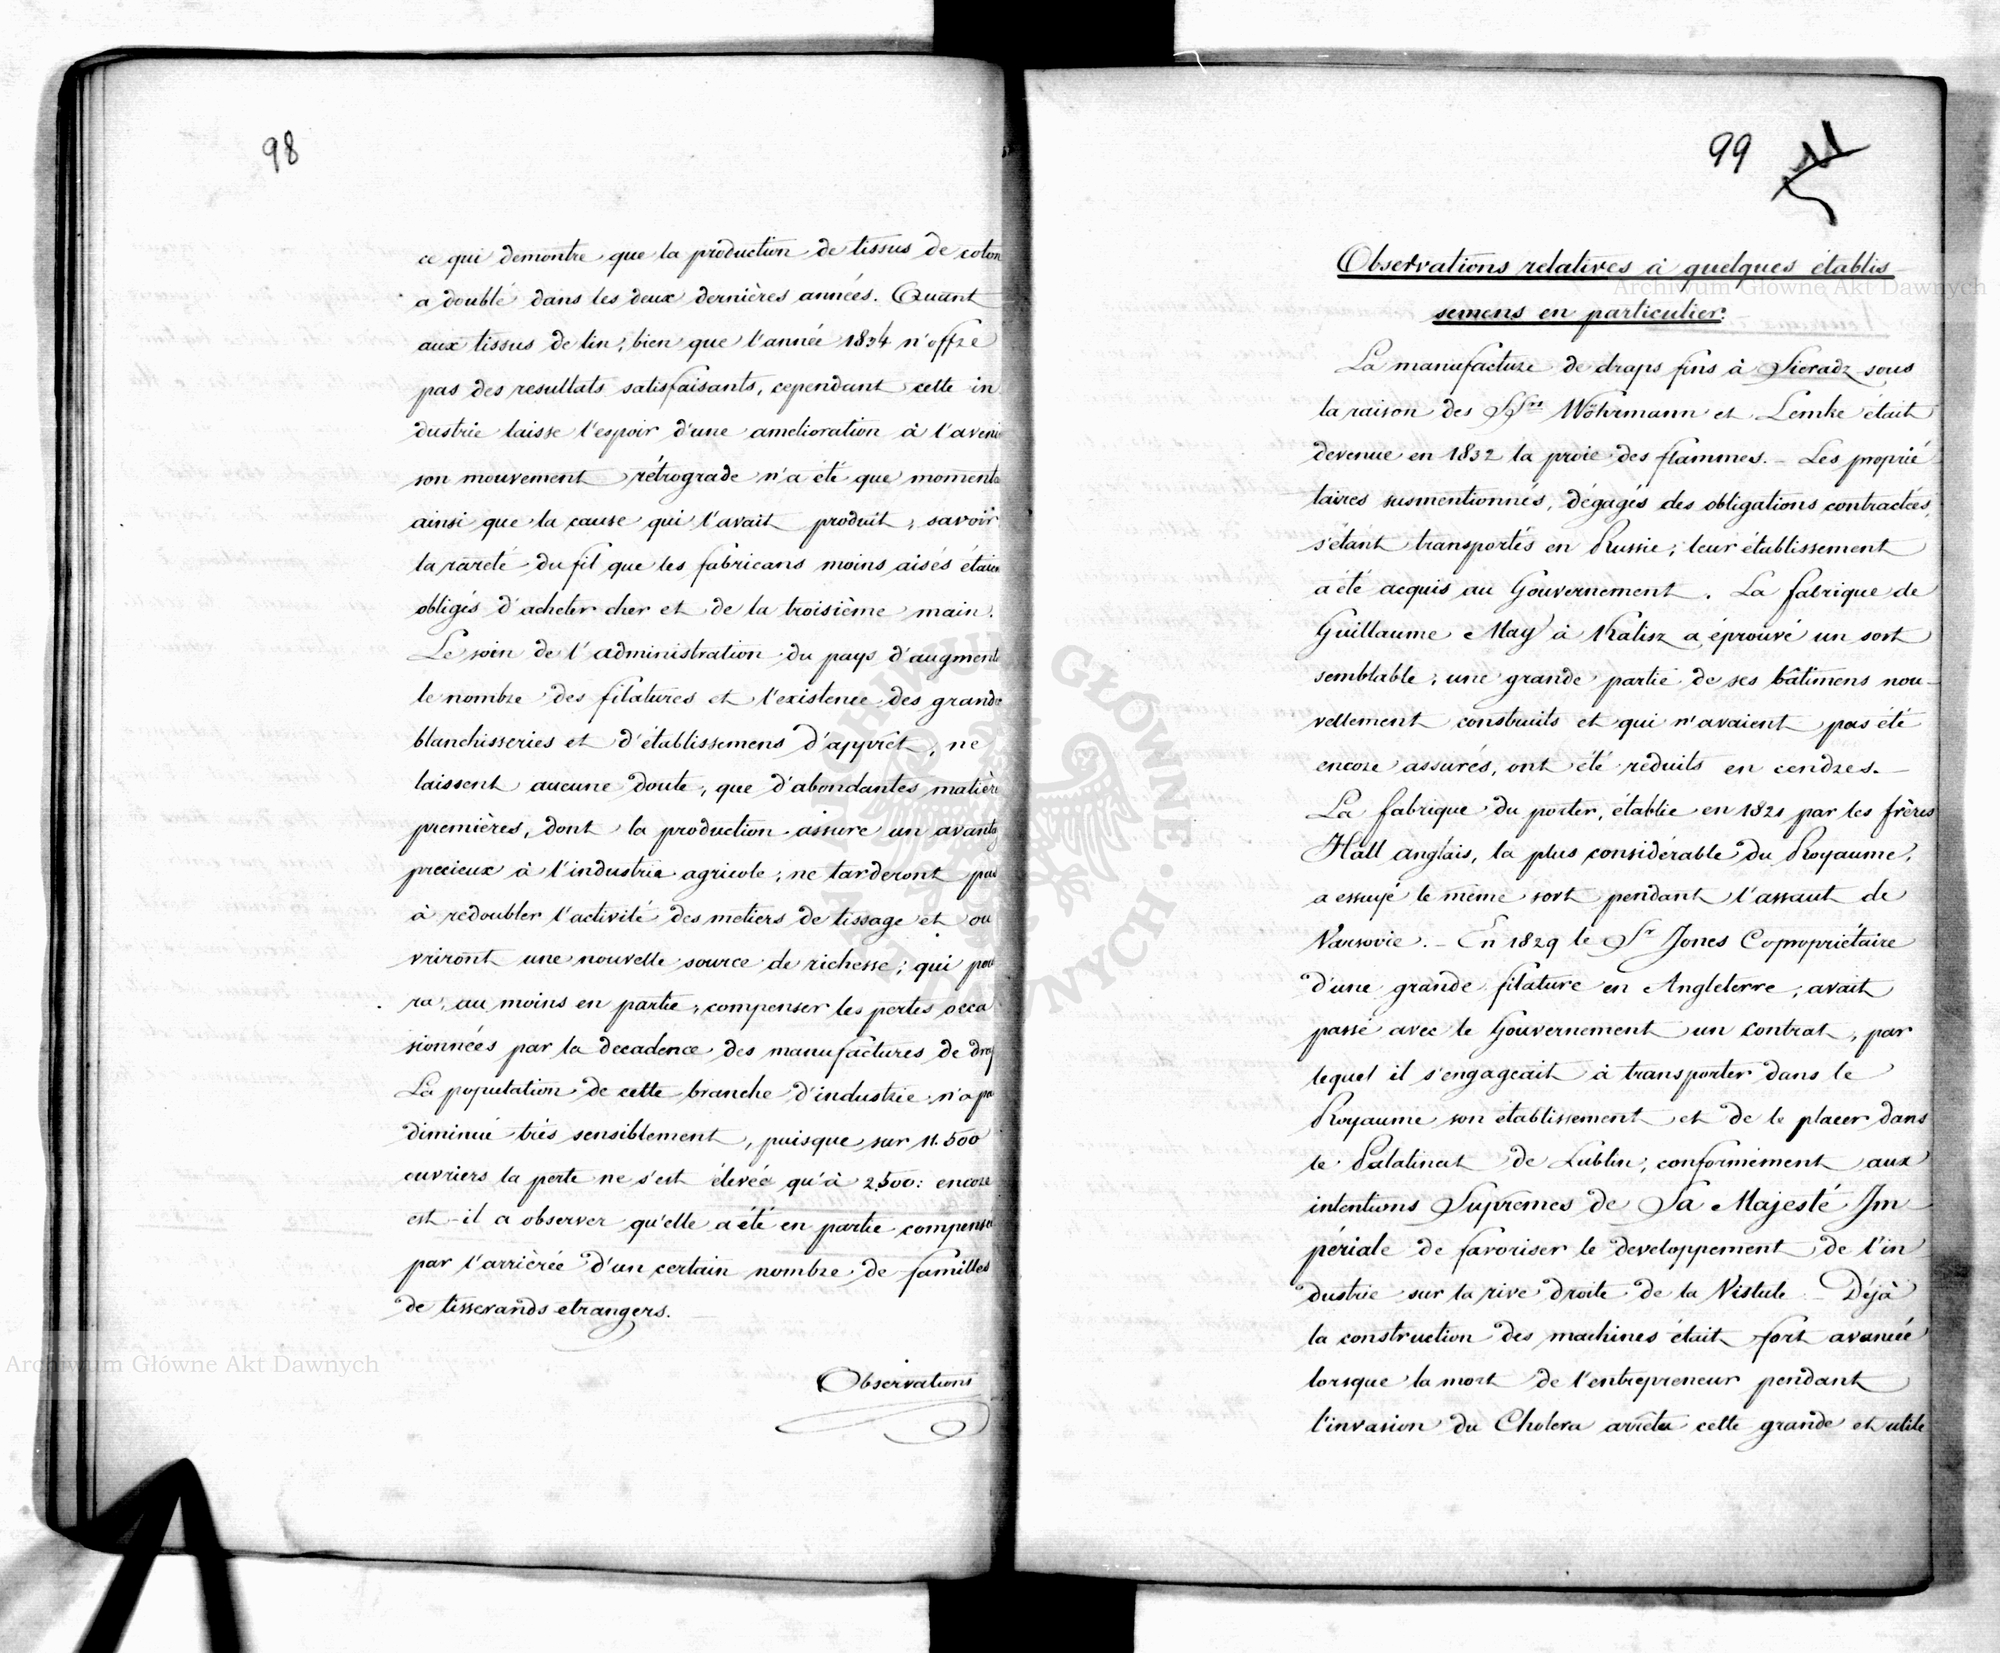 98
ce qui demontre que la production de tissus de coton
a doublé dans les deux dernières années. Quant
aux tissus de lin, bien que l'année 1834 n'offre
pas des resultats satisfaisants, cependant cette in
dustrie laisse l'espoir d'une amelioration à l'aveni
son mouvement rétrograde n'a été que momenta
ainsi que la cause qui l'avait produit, savoir
la rareté du fil que les fabricans moins aisés étaien
obligés d'acheter cher et de la troisième main.
Le soin de l'administration du pays d'augmente
le nombre des filatures et l'existence des grande
blanchisseries et d'établissemens d'apprêt, ne
laissent aucune doute, que d'abondantes matière
premières, dont la production assure un avantag
precieux à l'industrie agricole, ne tarderont pas
à redoubler l'activité des metiers de tissage et ou
vriront une nouvelle source de richesse, qui pour
ra, au moins en partie, compenser les pertes occa
sionnées par la decadence des manufactures de drap
La population de cette branche d'industrie n'a pa
diminué très sensiblement, puisque sur 11.500
ouvriers la perte ne s'est élevée qu'à 2.500: encore
est-il a observer qu'elle a été en partie compensé
par l'arrièrée d'un certain nombre de familles
de tisserands etrangers.
Observations
99
Observations relatives à quelques établis
semens en particulier.
La manufacture de draps fins à Sieradz sous
la raison des SSrs Wöhrmann et Lemke était
devenue en 1832 la proie des flammes. – Les proprié
taires susmentionnés, dégagés des obligations contractées,
s'étant transportés en Russie, leur établissement
a été acquis au Gouvernement. La fabrique de
Guillaume May à Kalisz a éprouvé un sort
semblable, une grande partie de ses bâtimens nou-
vellement construits et qui n'avaient pas été
encore assurés, ont été réduits en cendres. –
La fabrique du porter, établie en 1821 par les frères
Hall anglais, la plus considérable du Royaume,
a essuyé le même sort pendant l'assaut de
Varsovie. – En 1829 le Sr Jones Copropriétaire
d'une grande filature en Angleterre, avait
passé avec le Gouvernement un contrat, par
lequel il s'engageait à transporter dans le
Royaume son établissement et de le placer dans
le Palatinat de Lublin, conformément aux
intentions Supremes de Sa Majesté Im
périale de favoriser le developpement de l'in
dustrie sur la rive droite de la Vistule – Déjà
la construction des machines était fort avancée
lorsque la mort de l'entrepreneur pendant
l'invasion du Cholera arrêta cette grande et utile
Archiwum Główne Akt Dawnych
Archiwum Główne Akt Dawnych